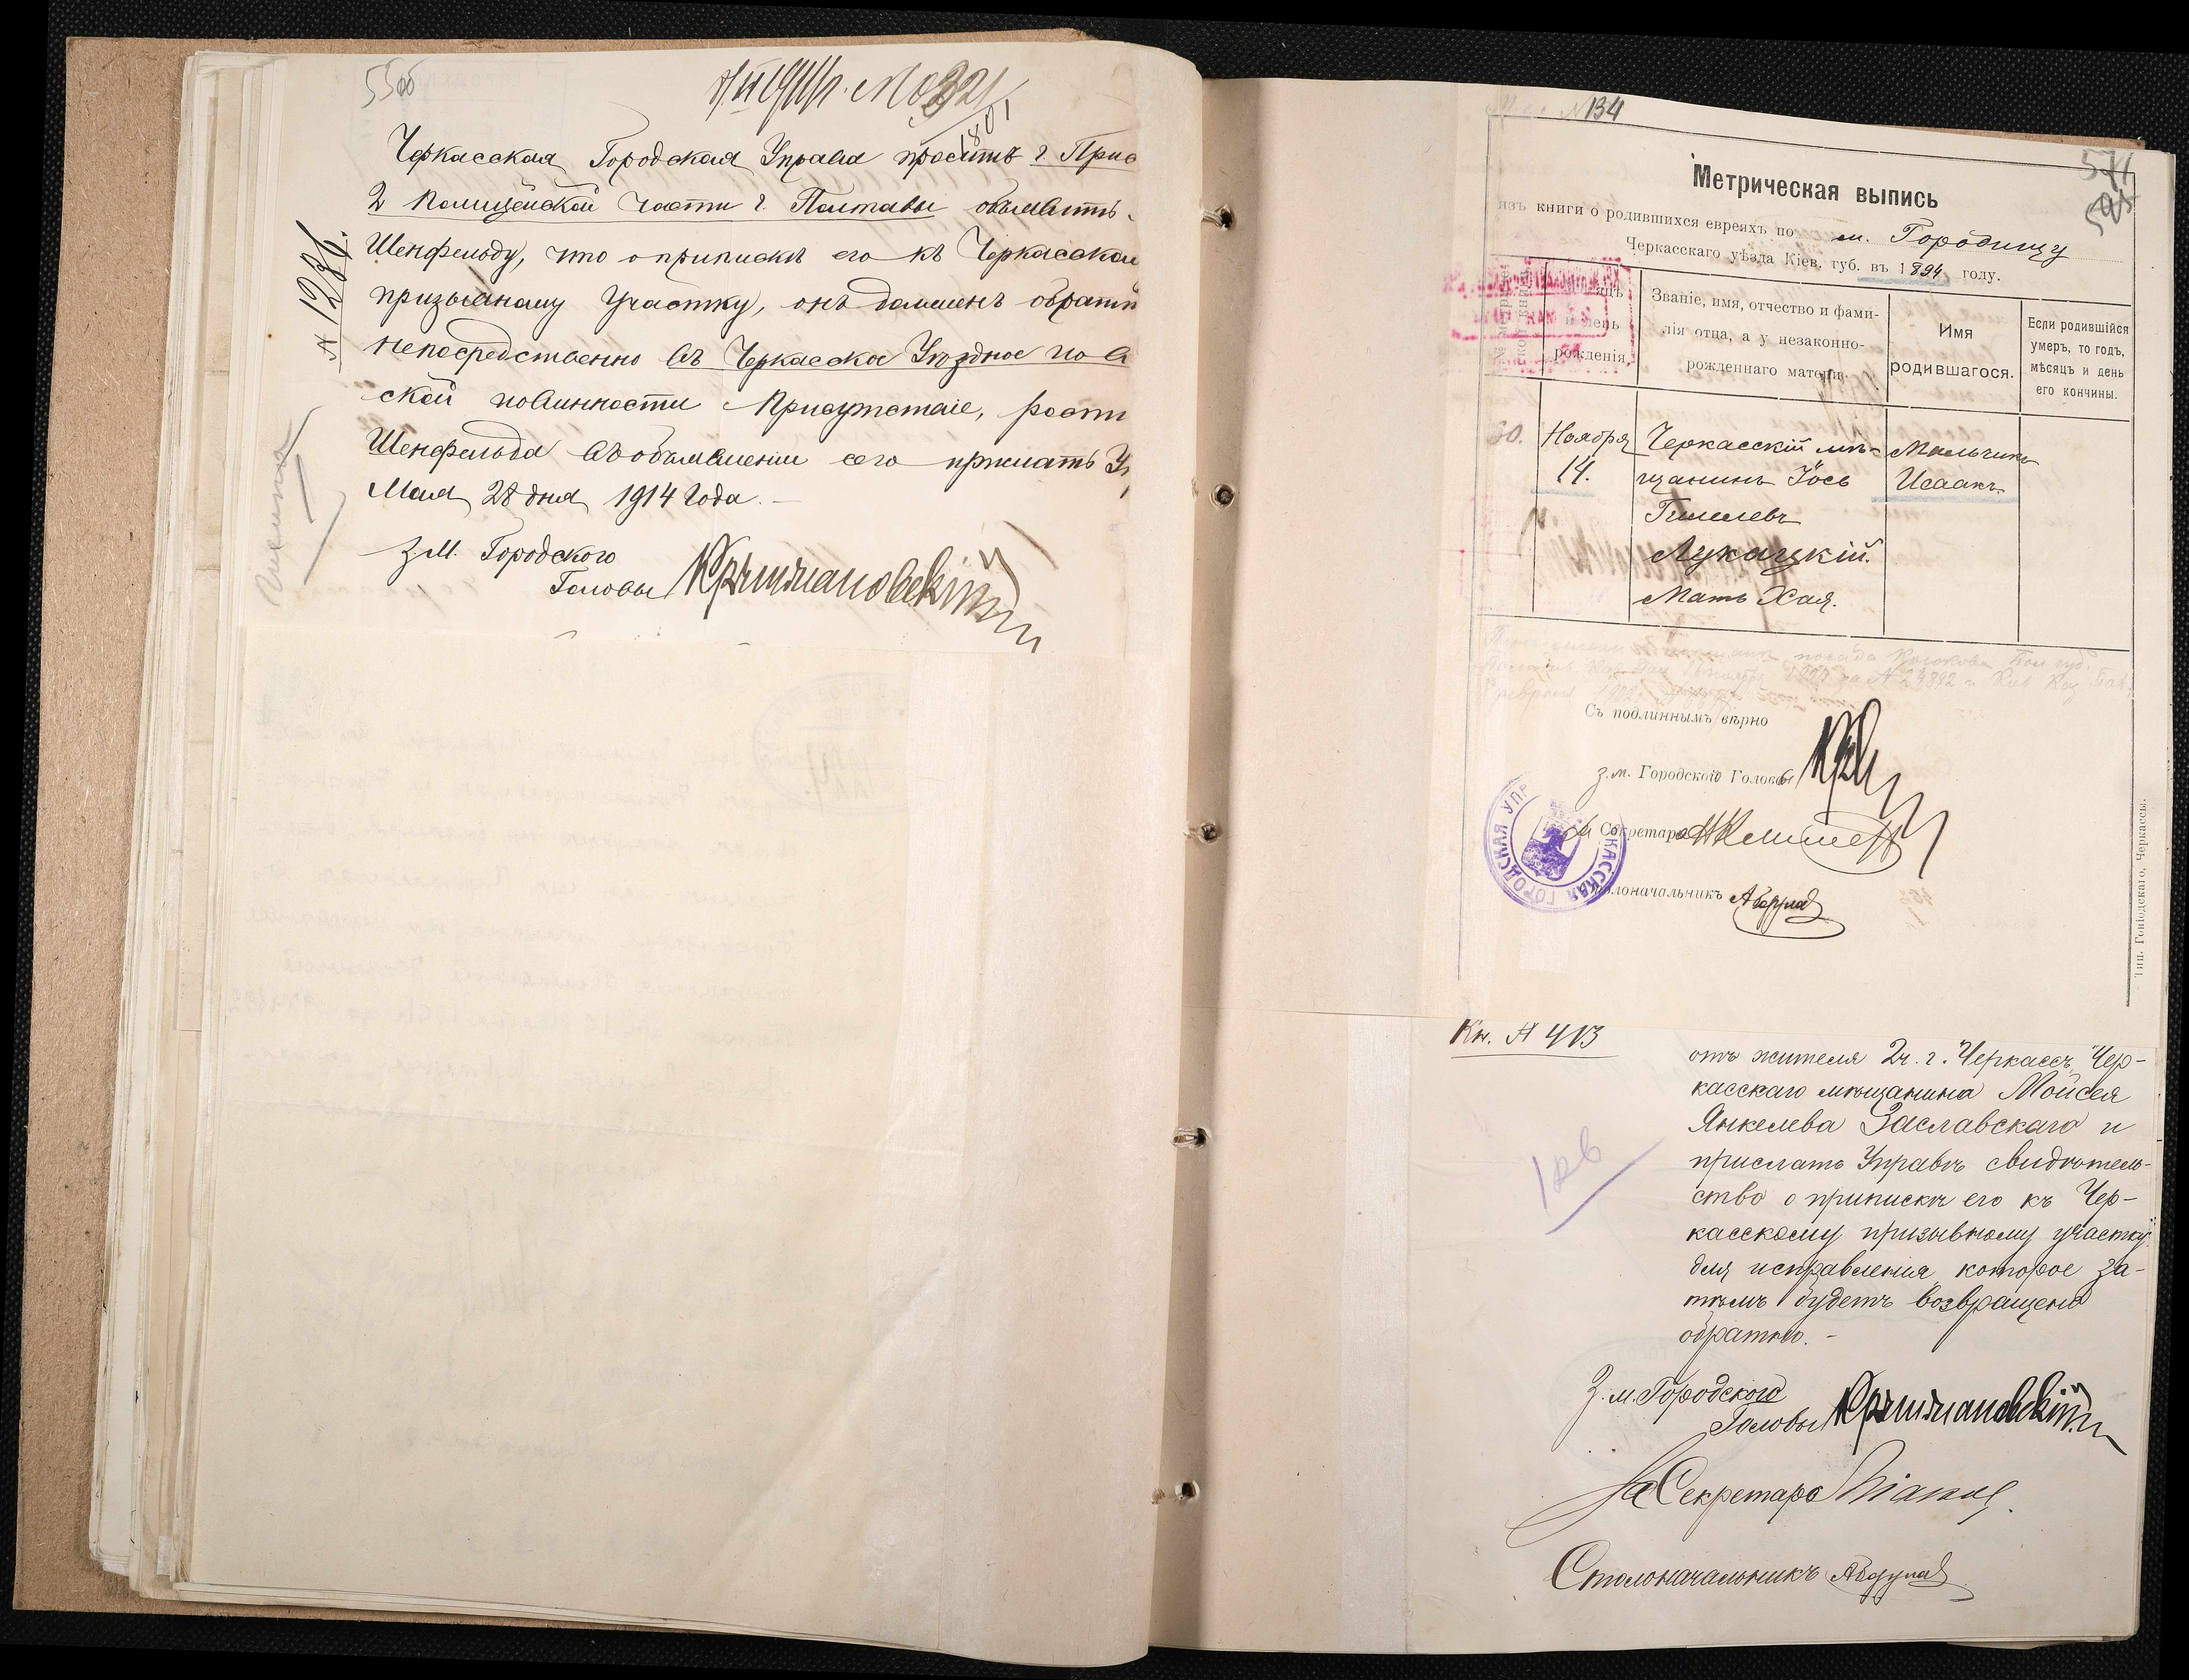 55об
Черкасская Городская Управа проситъ г. Прис
2 Полицейской части г. Полтавы объявить
Шенфельду, что о припискѣ его къ Черкасском
призывному участку, онъ долженъ обрати
непосредственно въ Черкасское Уѣздное по в
ской повинности Присутствіе, роспи
Шенфельда въ объявленіи сего прислать У
Мая 28 дня 1914 года.
З.м. Городского
Головы Крыжановскій
№ 1286.
№ 134
Метрическая выпись
изъ книги о родившихся евреяхъ по м. Городищу
Черкасскаго уѣзда Кіев. губ. въ 1894 году.
мѣсяцъ и день рожденія.
Званіе, имя, отчество и фами-
лія отца, а у незаконно-
рожденнаго матери.
Имя
родившагося.
Если родившійся
умеръ, то годъ,
мѣсяцъ и день
его кончины.
60. Ноября Черкасскій мѣ- Мальчикъ
14. щанинъ Іось Исаакъ.
Гилелевъ
Лукацкій.
Мать Хая.
Съ подлиннымъ вѣрно
з.м. Городского Головы
Секретаря
Столоначальникъ
ЧЕРКАССКАЯ ГОРОДСКАЯ УПР
Тип. Гоніодскаго, Черкассы.
Кн. № 413
отъ жителя 2ч. г. Черкассъ, Чер-
касскаго мѣщанина Мойсея
Янкелева Заславскаго и
прислать Управѣ свидѣтель-
ство о припискѣ его къ Чер-
касскому призывному участку
для исправленія, которое за-
тѣмъ будетъ возвращено
обратно.-
З.м. Городского
Головы Крыжановскій
За Секретаря
Столоначальникъ